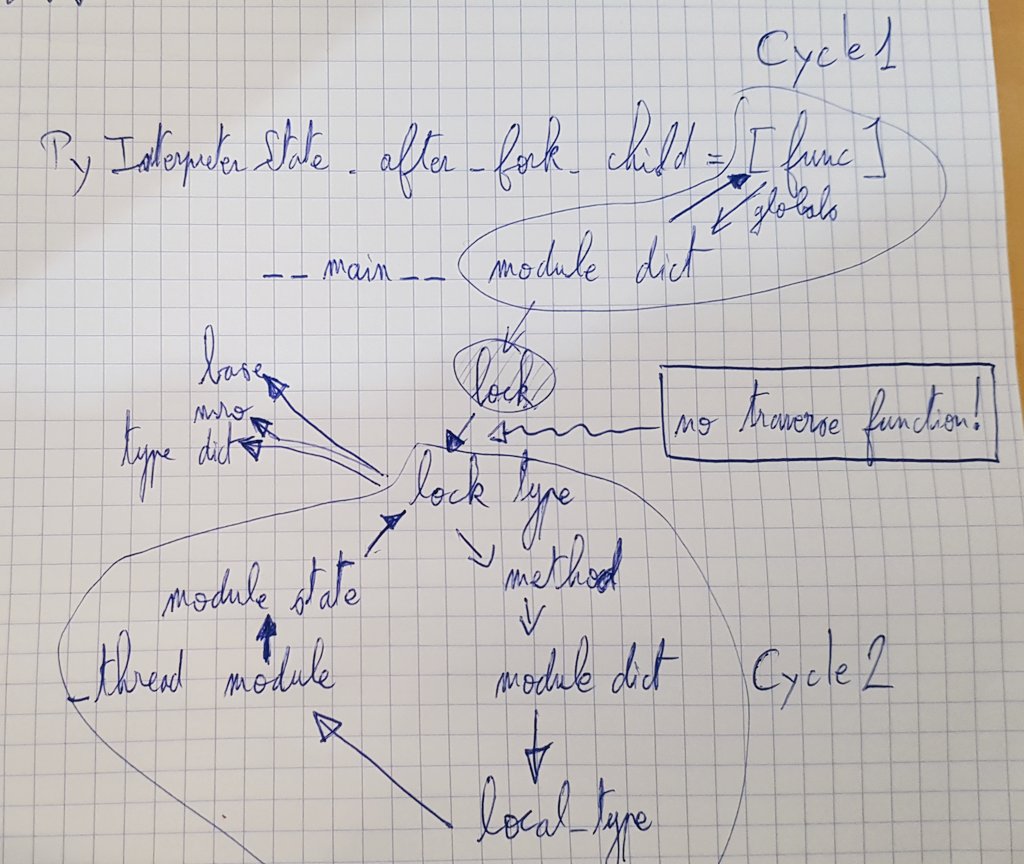 Cycle 1
PyInterpreterState.after_fork_child = [func]
globals
__main__ module dict
base
lock
mro
no traverse function!
type dict
lock type
method
module state
_thread module
module dict
Cycle 2
local_type